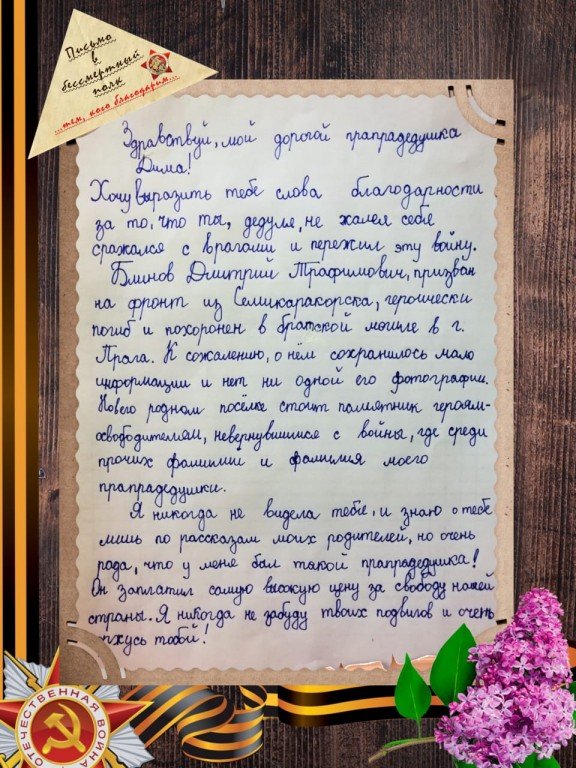 Письмо
в
бессмертный
полк
...тем, кого благодарим...
Здравствуй, мой дорогой прапрадедушка
Дима!
Хочу выразить тебе слова благодарности
за то, что ты, дедуля, не жалея себя
сражался с врагами и пережил эту войну.
Блинов Дмитрий Трафимович, призван
на фронт из Семикаракорска, героически
погиб и похоронен в братской могиле в г.
Прага. К сожалению, о нём сохранилось мало
информации и нет ни одной его фотографии.
Но в его родном посёлке стоит памятник героям-
освободителям, невернувшимся с войны, где среди
прочих фамилий и фамилия моего
прапрадедушки.
Я никогда не видела тебя, и знаю о тебе
лишь по рассказам моих родителей, но очень
рада, что у меня был такой прапрадедушка!
Он заплатил самую высокую цену за свободу нашей
страны. Я никогда не забуду твоих подвигов и очень
тобой!
ОТЕЧЕСТВЕННАЯ ВОЙНА